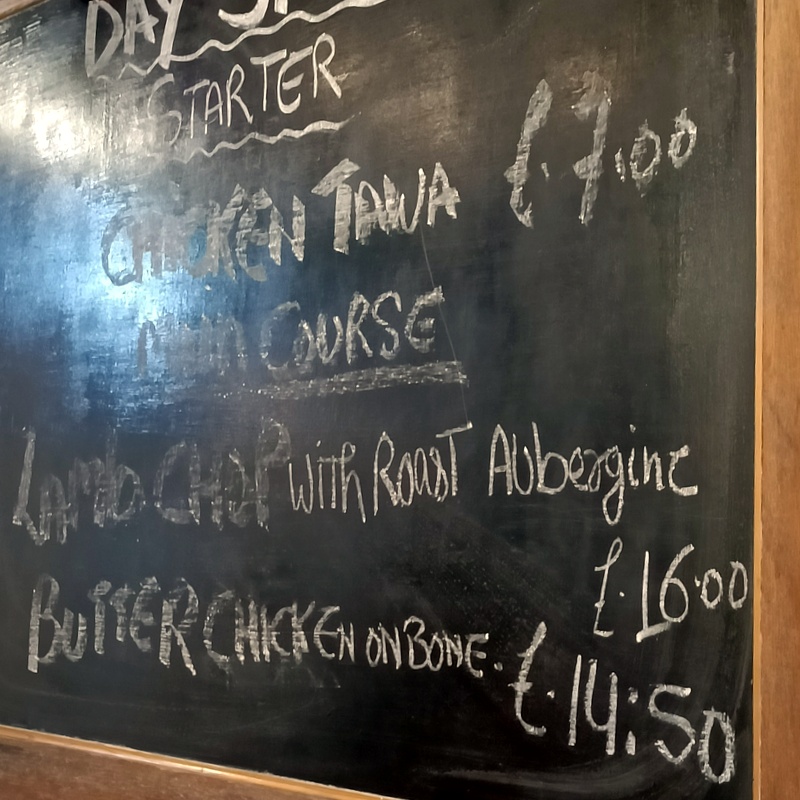 DAY SP
STARTER
CHICKEN TAWA £.7.00
MAIN COURSE
Lamb CHOP with Roast Aubergine
£.16.00
BUTTER CHICKEN ON BONE. £.14:50